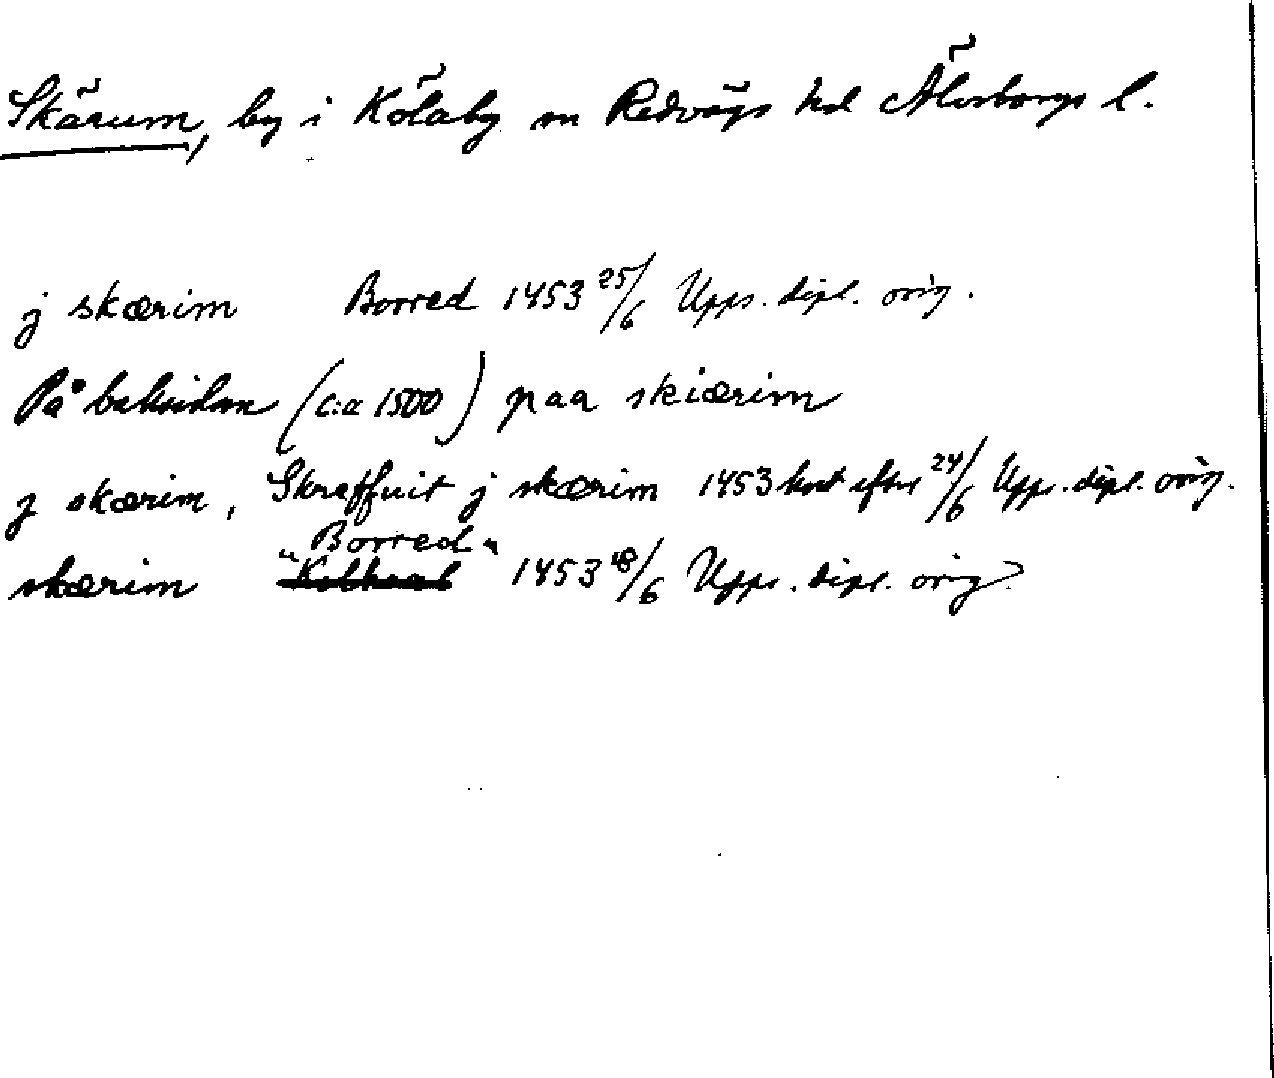 Skärum, by i Kölaby sn Redvägs hd Älvsborgs l.
j skærim Borred 1453 25/6 Upps. dipl. orig.
På baksidan (c:a 1500) paa skiærim
j skærim, Skreffuit j skærim 1453 kort efter 24/6 Upps. dipl. orig.
"Borred"
skærim 1453 18/6 Upps. dipl. orig